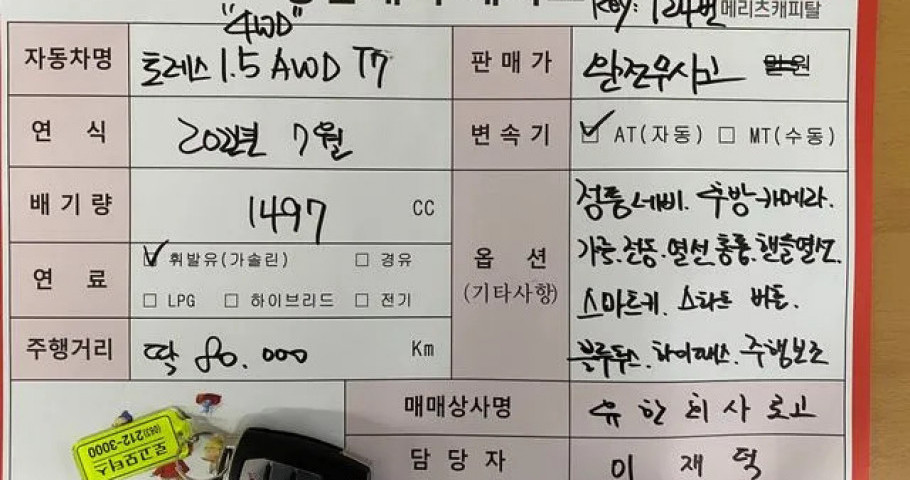 Key: 124번 메리츠캐피탈
"4WD"
자동차명 토레스 1.5 AWD T7
판매가 완전무사고 만원
연식 2022년 7월
변속기 ☑ AT(자동) ☐ MT(수동)
배기량 1497 CC
연료 ☑ 휘발유(가솔린) ☐ 경유
☐ LPG ☐ 하이브리드 ☐ 전기
주행거리 딱 80.000 Km
옵션
(기타사항)
정품네비. 후방카메라.
가죽.전동.열선통풍.핸들열선.
스마트키. 스타트 버튼.
블루투스. 하이패스. 주행보조
매매상사명 유한회사 로고
담당자 이재덕
로고모터스
(063)212-3000